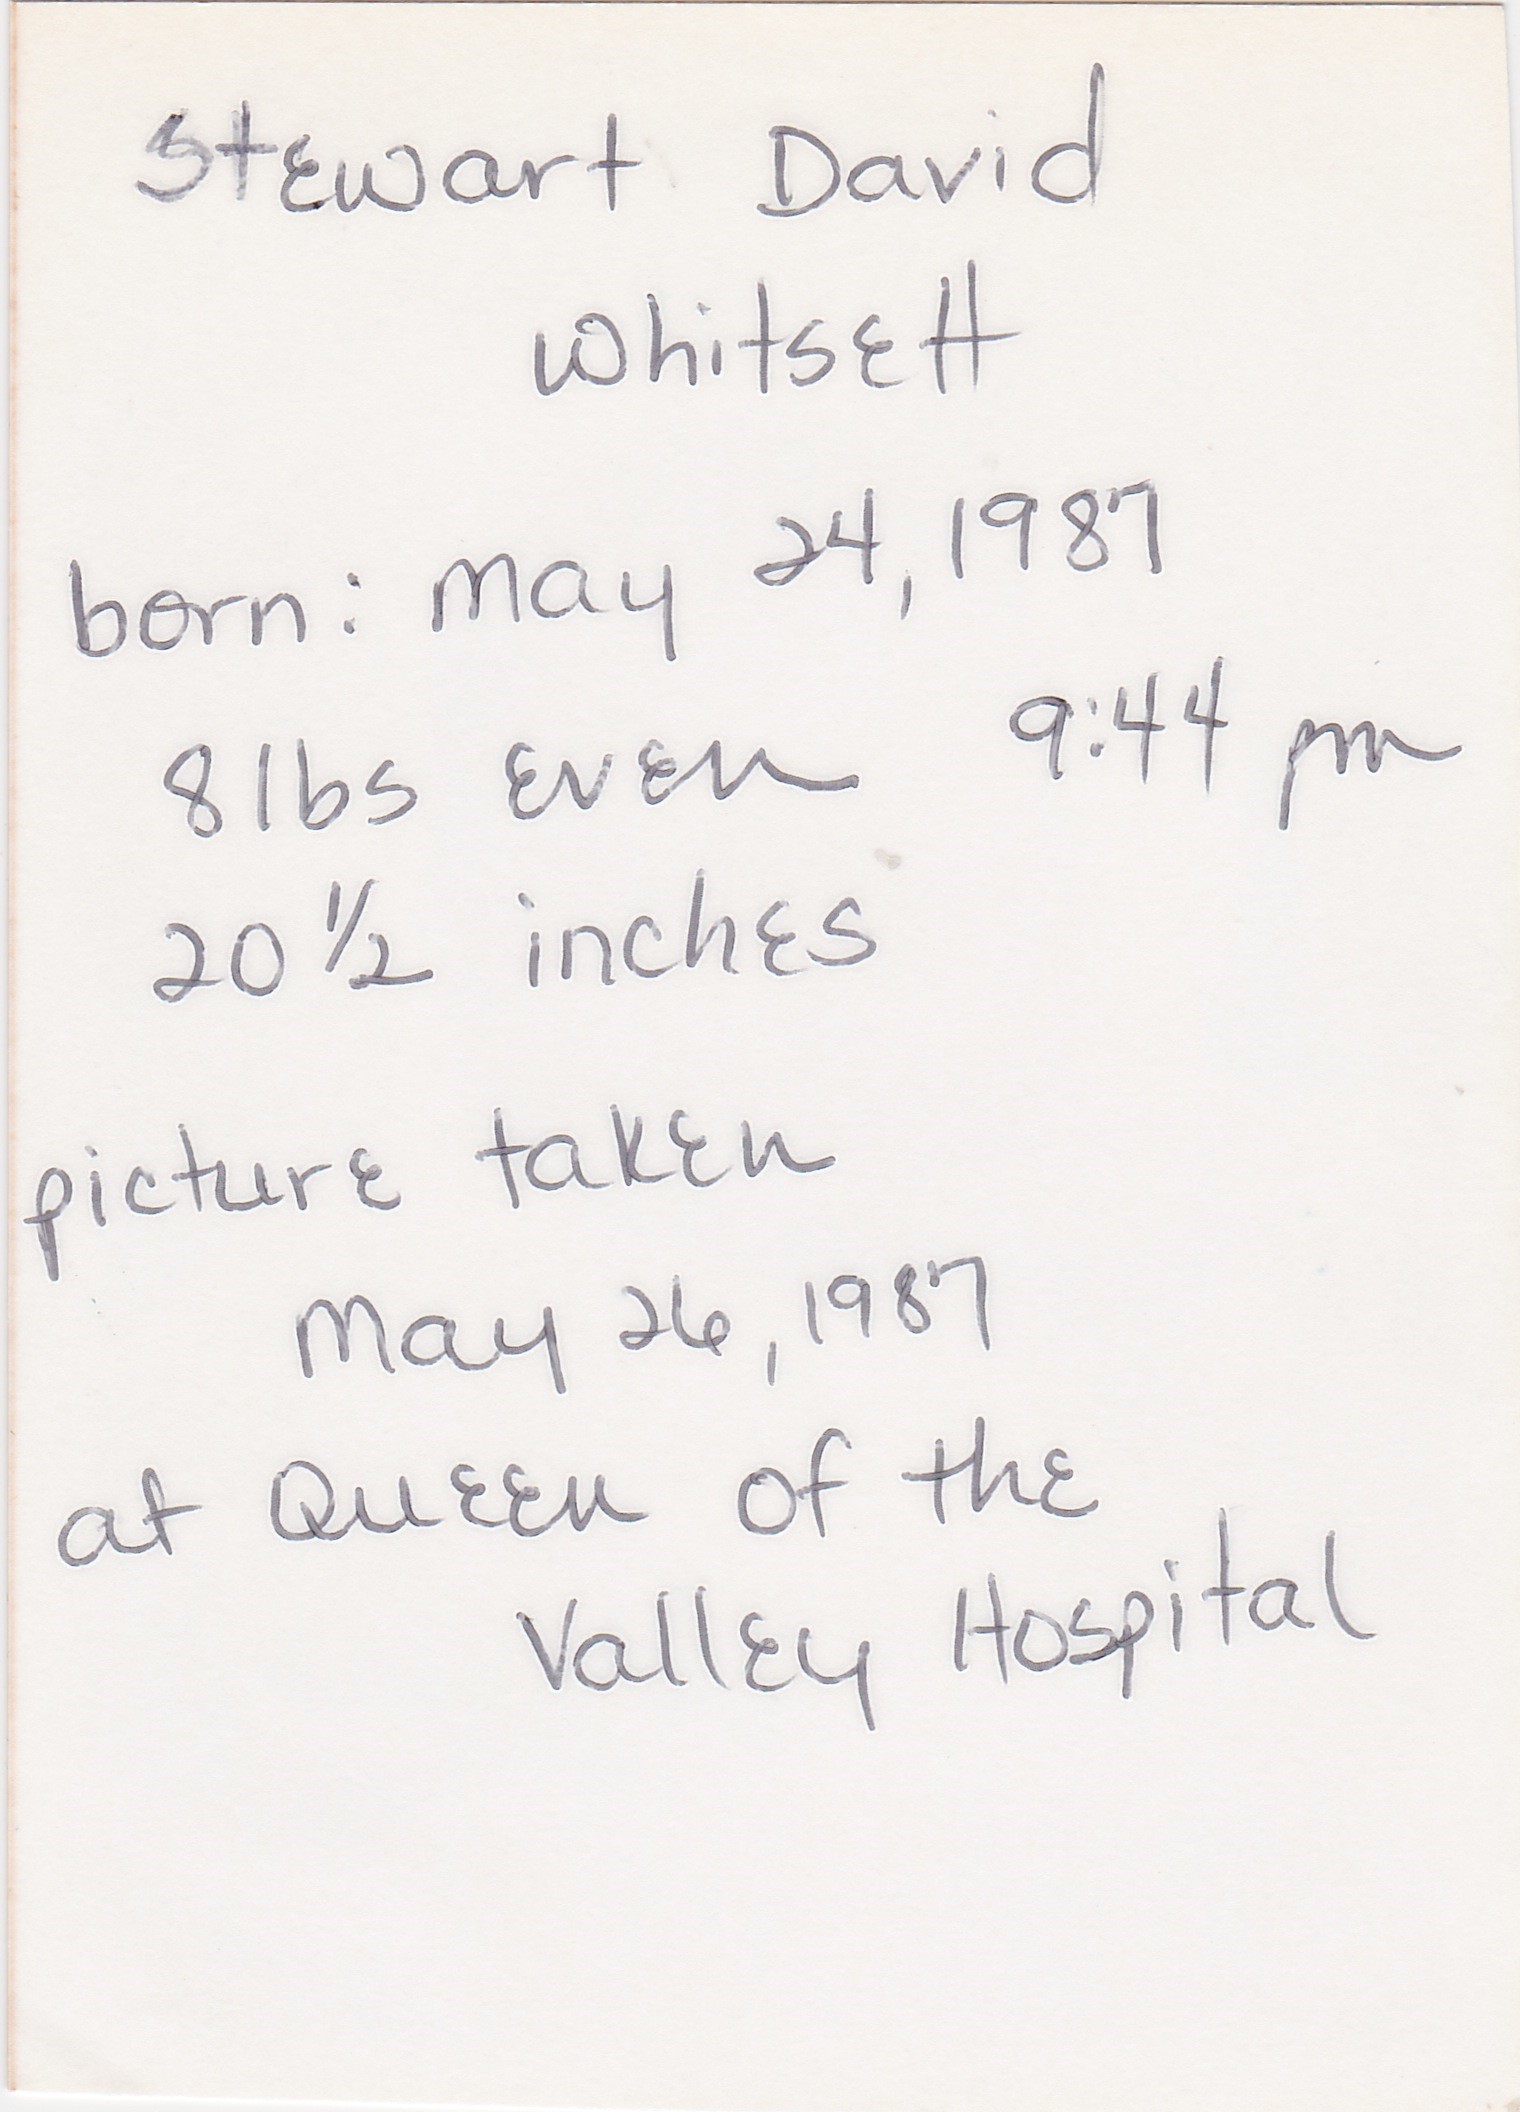 Stewart David
Whitsett
born: May 24, 1987
8 lbs even 9:44 pm
20 1/2 inches
picture taken
May 26, 1987
at Queen of the
Valley Hospital